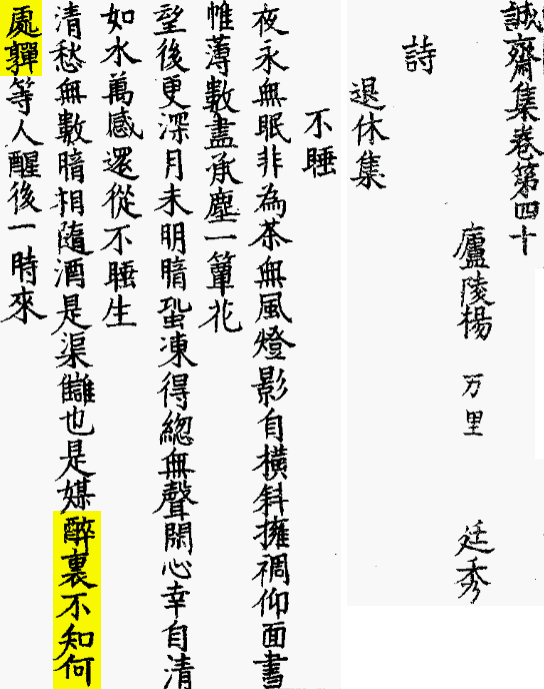 誠齋集卷第四十
廬陵楊 万里 廷秀
詩
退休集
不睡
夜永無眠非為茶無風燈影自橫斜擁裯仰面書
帷薄數盡承塵一簟花
望後更深月未明暗蛩凍得緫無聲閑心幸自清
如水萬感還從不睡生
清愁無數暗相隨酒是渠讎也是媒醉裏不知何
處嚲等人醒後一時來